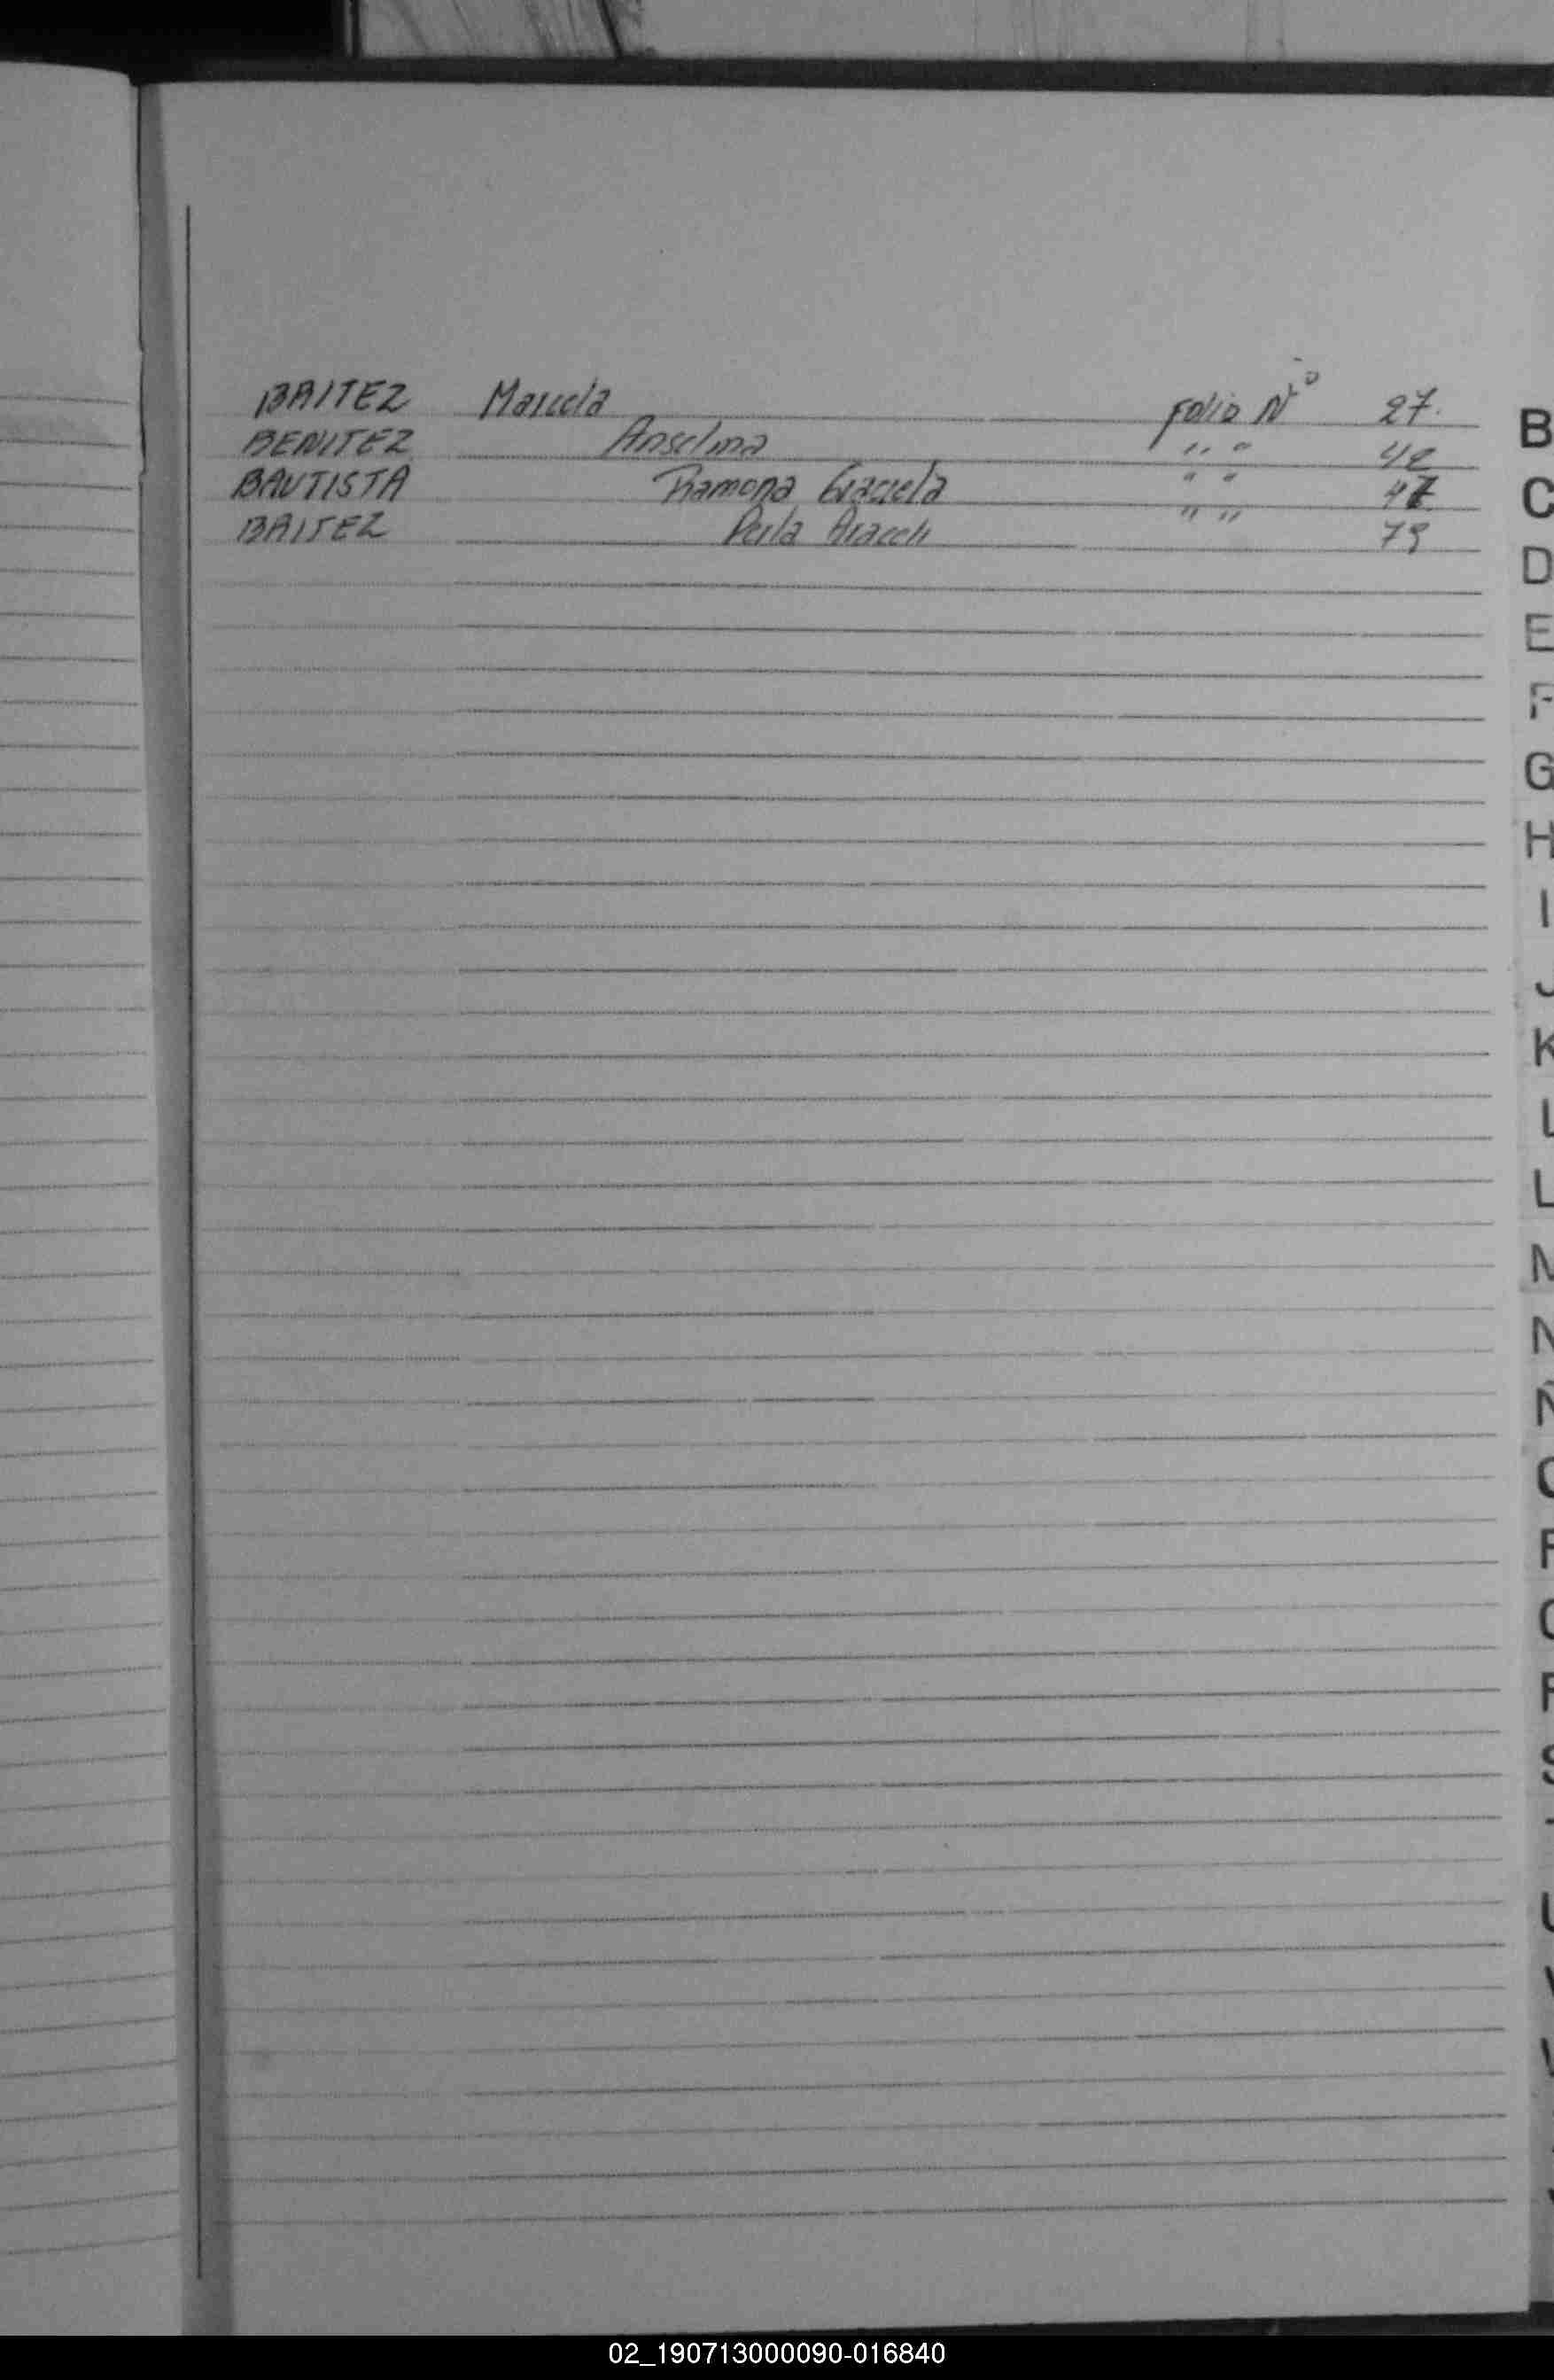 BAITEZ Marcela Folio Nº 27.
BENITEZ Anselma " " 42
BAUTISTA Ramona Graciela " " 47
BAITEZ Perla Araceli " " 79
B
C
D
E
F
G
H
I
J
K
L
L
M
N
Ñ
O
P
Q
R
S
T
U
V
W
02_190713000090-016840